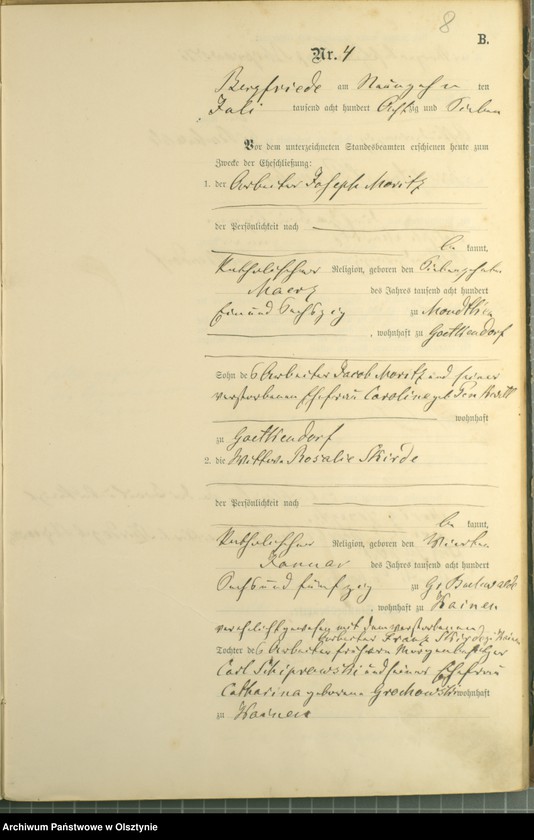 8
B.
Nr. 4
Bergfriede am Neunzehn ten
Juli tausend acht hundert Achtzig und Sieben
Vor dem unterzeichneten Standesbeamten erschienen heute zum
Zwecke der Eheschließung:
1. der Arbeiter Joseph Moritz
der Persönlichkeit nach
be kannt,
katholischer Religion, geboren den Siebenzehnten
Maerz des Jahres tausend acht hundert
Einund Sechszig zu
, wohnhaft zu Goethendorf
Sohn des Arbeiter Jacob Moritz und seiner
verstorbenen Ehefrau Caroline geb
wohnhaft
zu Goethendorf
2. die Wittwe Rosalie Skirde
der Persönlichkeit nach
be kannt,
katholischer Religion, geboren den Vierten
Januar des Jahres tausend acht hundert
Sechsund fünfzig zu Gr Buchwalde
, wohnhaft zu Hainen
verehelicht gewesen mit dem verstorbenen
Arbeiter Franz Skirde zu Hainen
Tochter des Arbeiter früheren
Carl Schiprewski und seiner Ehefrau
Catharina geborene Grochowski wohnhaft
zu Hainen
Archiwum Państwowe w Olsztynie